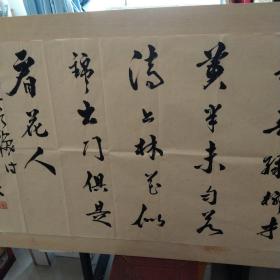 春绿柳才
黄半未匀若
待上林花似
锦出门俱是
看花人